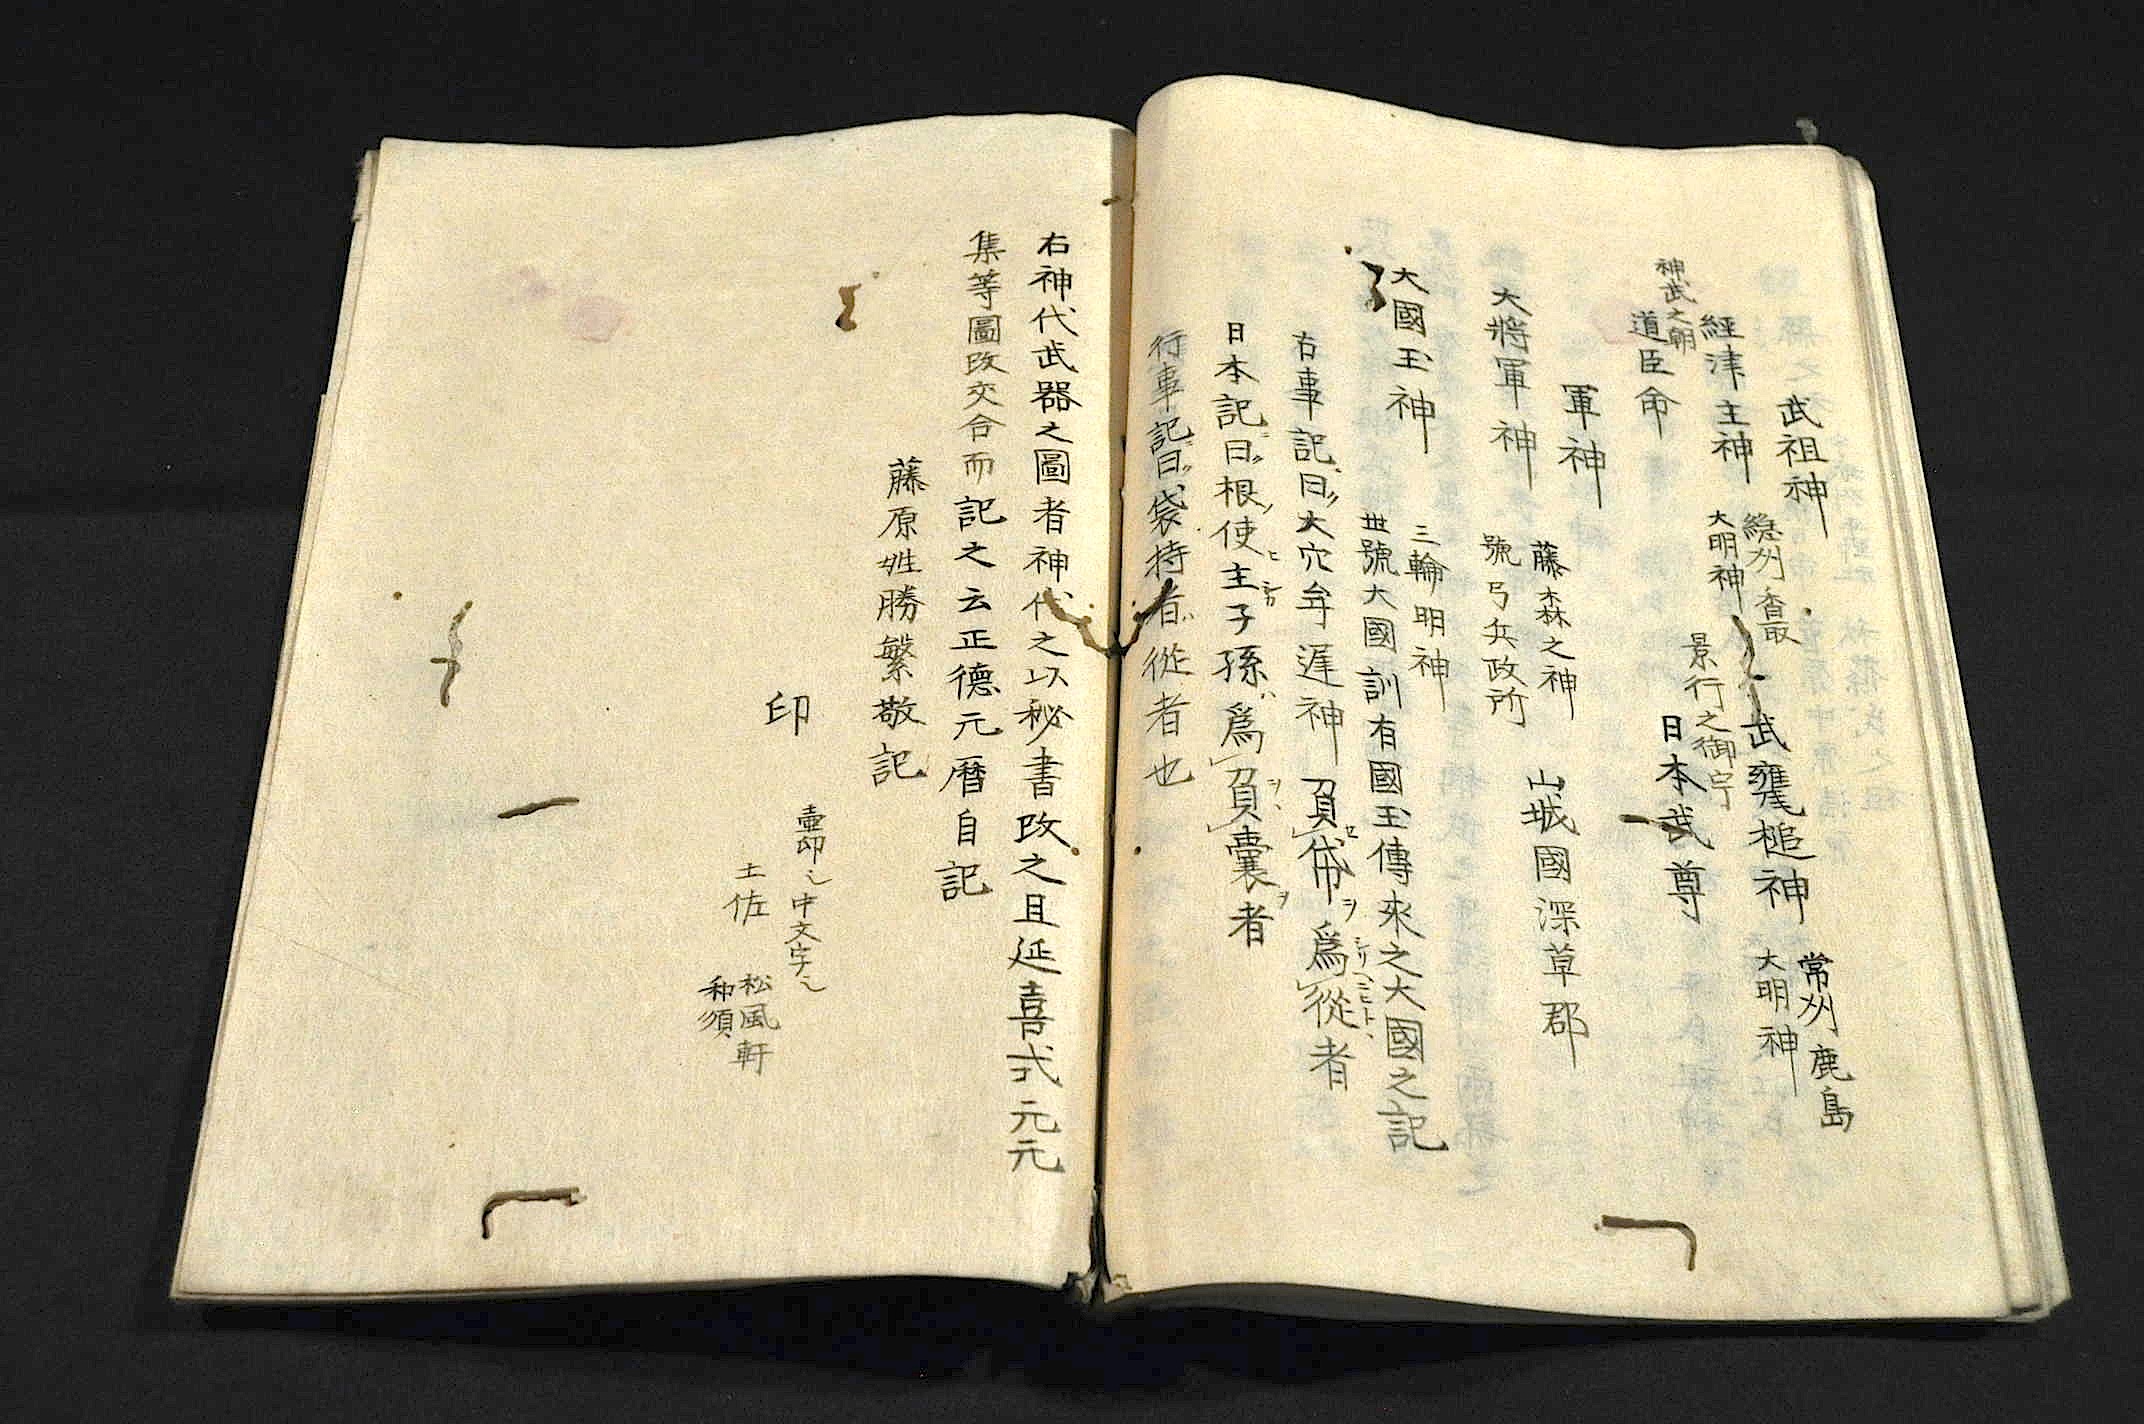 武祖神
經津主神 總州香取大明神 武甕槌神 常州鹿島大明神
神武之朝 道臣命 景行之御宇 日本武尊
軍神
大將軍神 藤森之神號弓兵政所 山城國深草郡
大國玉神 三輪明神
世號大國訓有國玉傳來之大國之記
右事記曰大穴牟遅神負帒爲從者
日本記曰根使主子孫爲負囊者
行事記曰袋持者從者也
右神代武器之圖者神代之以秘書改之且延喜式元元
集等圖改交合而記之云正德元曆自記
藤原姓勝繁敬記
印
壷印ハ中文字ハ
土佐 松風軒
和須